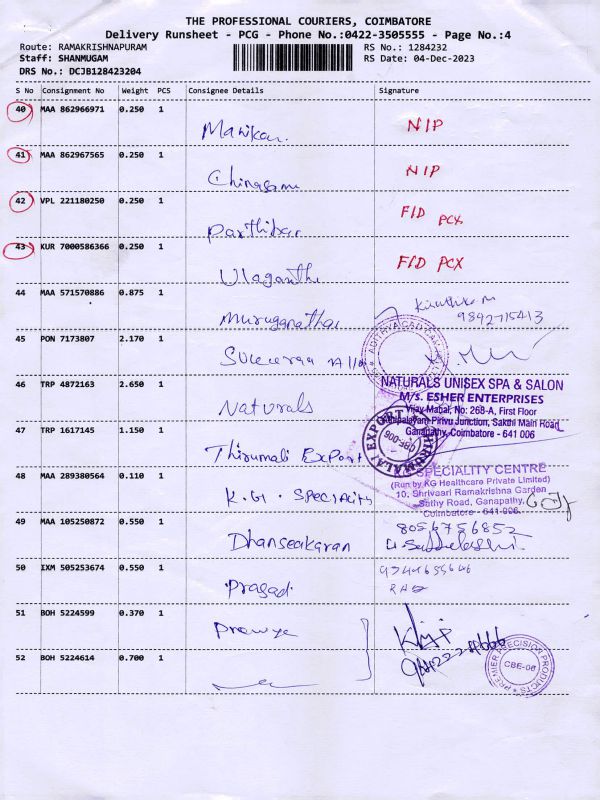 THE PROFESSIONAL COURIERS, COIMBATORE
Delivery Runsheet - PCG - Phone No.:0422-3505555 - Page No.:4
Route: RAMAKRISHNAPURAM RS No.: 1284232
Staff: SHANMUGAM RS Date: 04-Dec-2023
DRS No.: DCJB128423204
S No Consignment No Weight PCS Consignee Details Signature
40 MAA 862966971 0.250 1
Manikan NIP
41 MAA 862967565 0.250 1
Chinasami NIP
42 VPL 221180250 0.250 1
Parthiban F/D PCX
43 KUR 7000586366 0.250 1
Ulaganthi F/D PCX
44 MAA 571570886 0.875 1
Muruganathan
9842715413
45 PON 7173807 2.170 1
46 TRP 4872163 2.650 1
Naturals
NATURALS UNISEX SPA & SALON
M/s. ESHER ENTERPRISES
Vijay Mahal, No: 26B-A, First Floor
Pirivu Junction, Sakthi Main Road
Ganapathy, Coimbatore - 641 006
47 TRP 1617145 1.150 1
Thirumali Export
THIRUMALAI EXPORT
CBE-006
48 MAA 289380564 0.110 1
K.G. Speciality
SPECIALITY CENTRE
(Run by KG Healthcare Private Limited)
10, Shrivaari Ramakrishna Garden
Sathy Road, Ganapathy,
Coimbatore - 641 006.
49 MAA 105250872 0.550 1
Dhansekaran
8056756852
50 IXM 505253674 0.550 1
Prasad
51 BOH 5224599 0.370 1
52 BOH 5224614 0.700 1
PREMIER PRECISION PRODUCTS
CBE-06